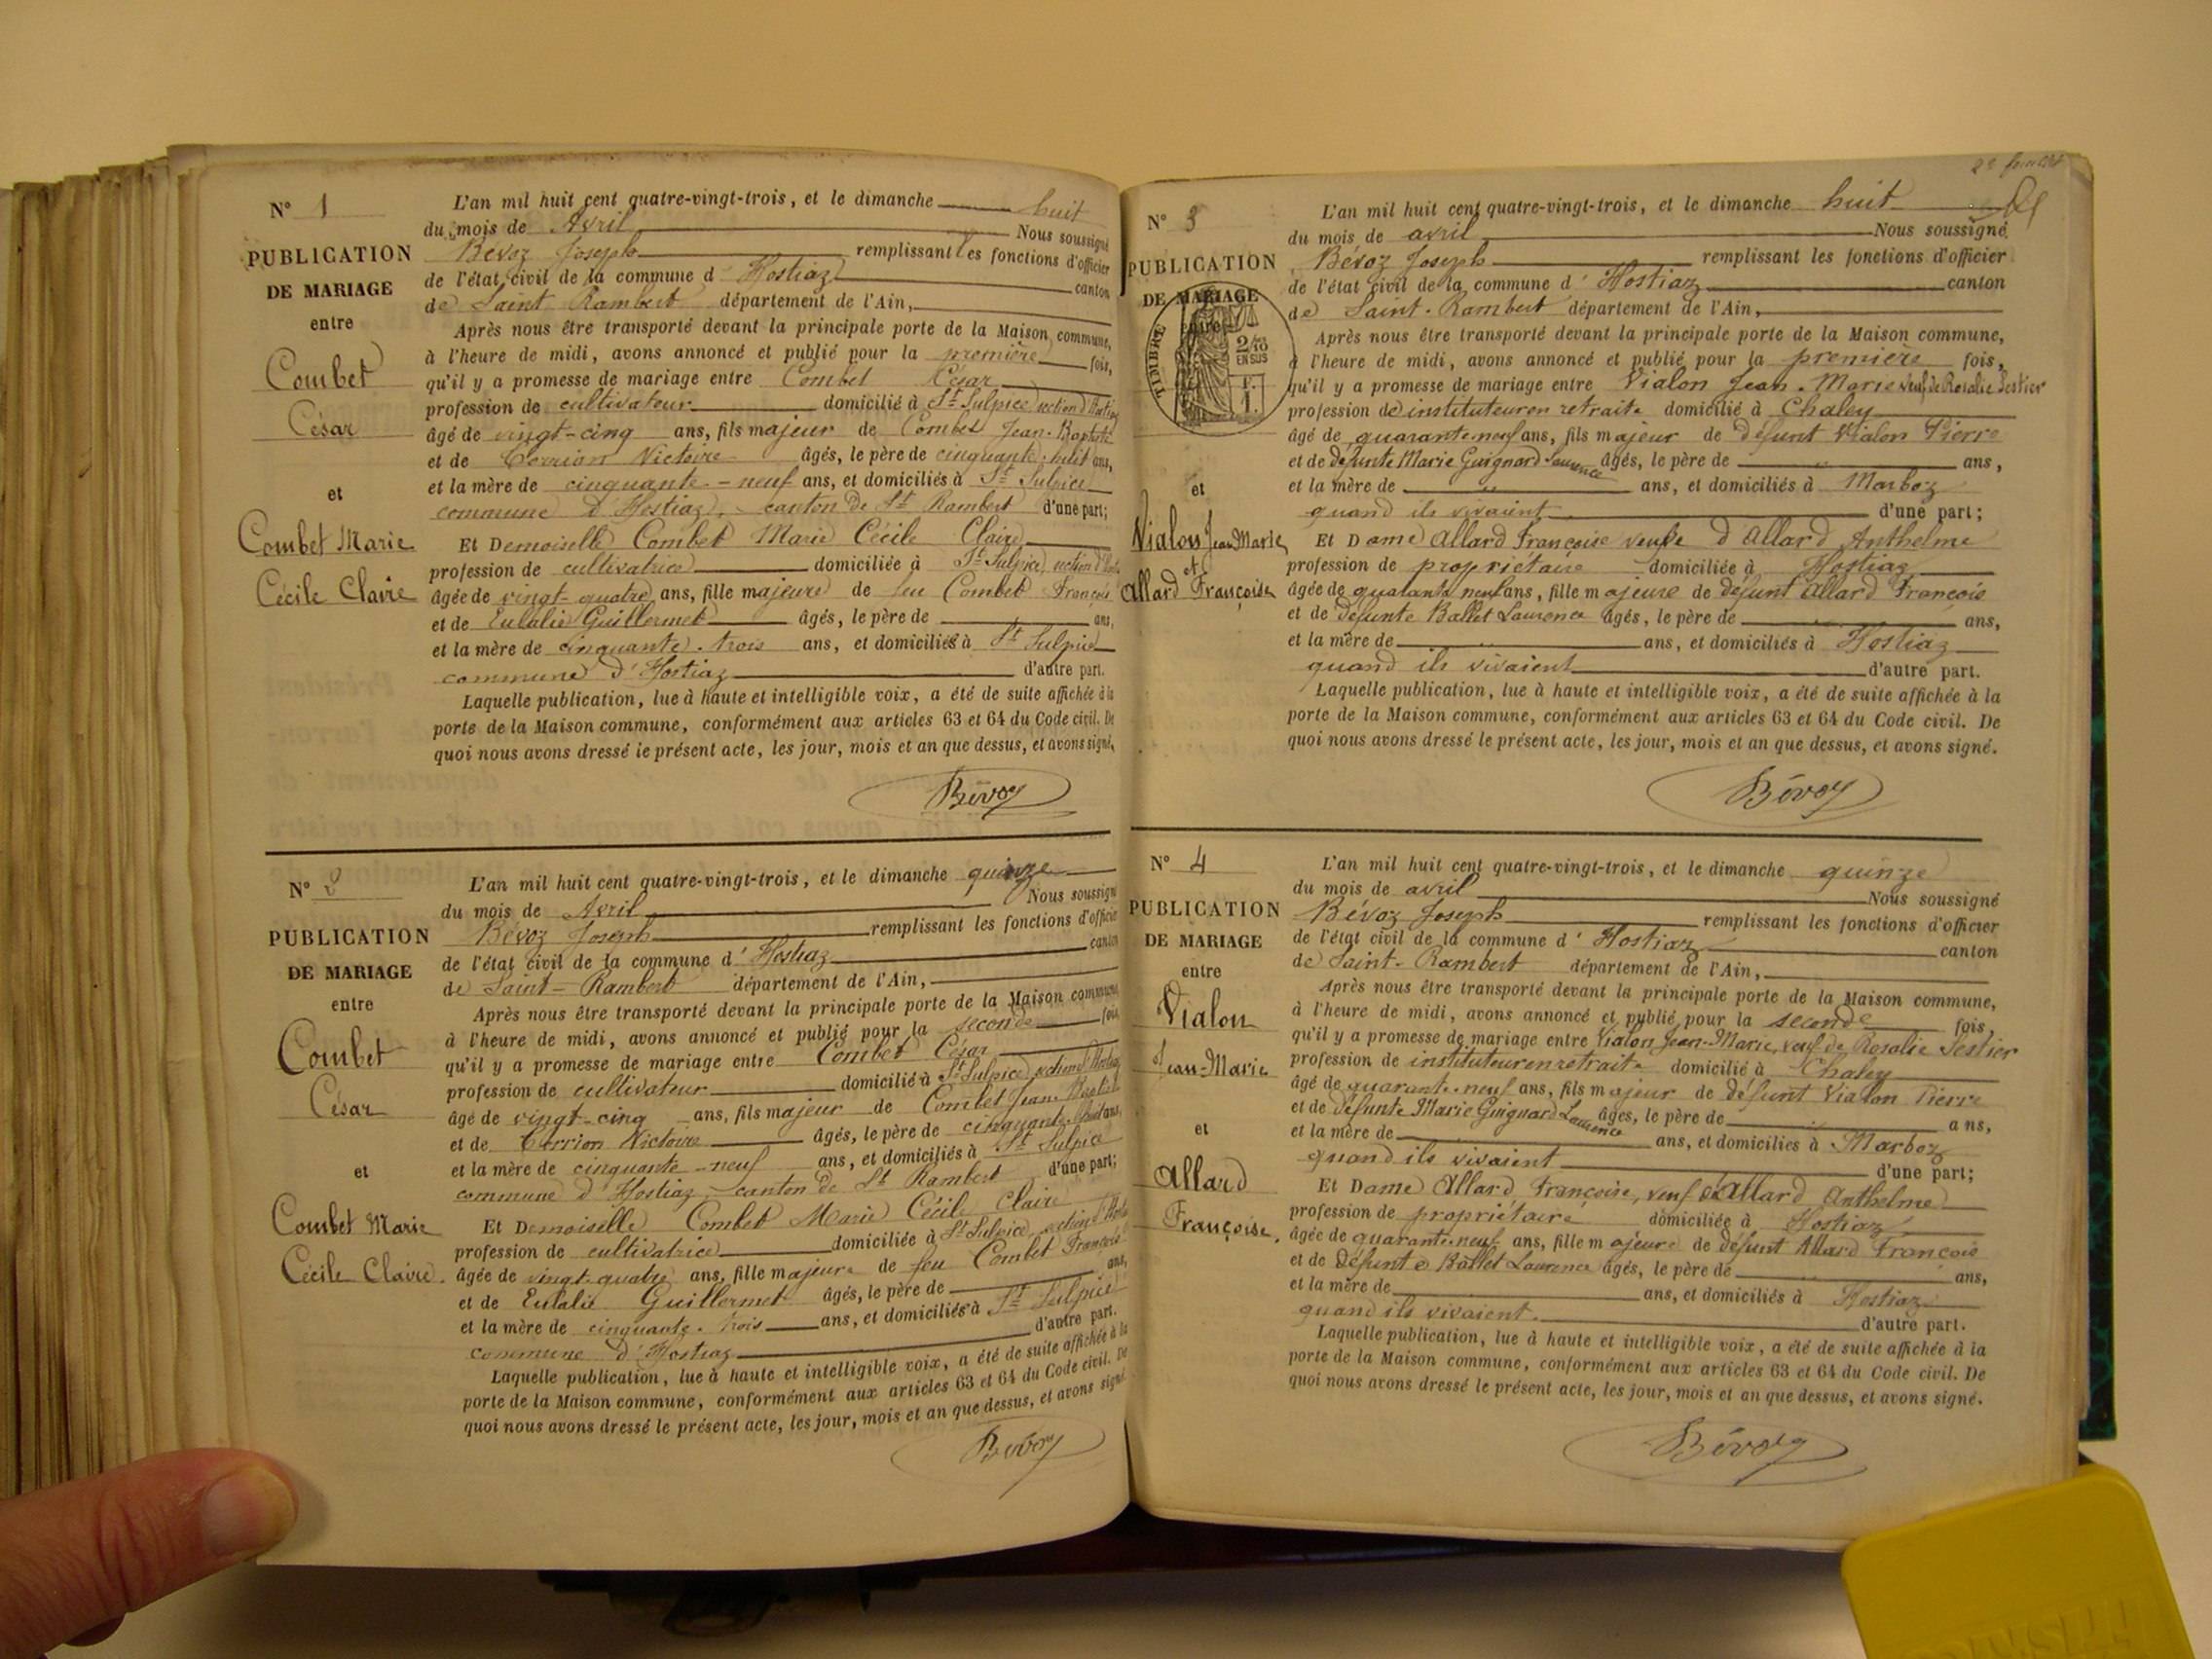 N° 1
PUBLICATION
DE MARIAGE
entre
Combet
César
et
Combet Marie
Cécile Claire
L'an mil huit cent quatre-vingt-trois, et le dimanche huit
du mois de Avril Nous soussigné
Bévoz Joseph remplissant les fonctions d'officier
de l'état civil de la commune d' Hostiaz canton
de Saint Rambert département de l'Ain,
Après nous être transporté devant la principale porte de la Maison commune,
à l'heure de midi, avons annoncé et publié pour la première fois,
qu'il y a promesse de mariage entre Combet César
profession de cultivateur domicilié à St Sulpice section d'
âgé de vingt-cinq ans, fils majeur de Combet Jean-Baptiste
et de Victoire âgés, le père de cinquante-huit ans,
et la mère de cinquante-neuf ans, et domiciliés à St Sulpice
commune d'Hostiaz, canton de St Rambert d'une part;
Et Demoiselle Combet Marie Cécile Claire
profession de cultivatrice domiciliée à St Sulpice, section
âgée de vingt-quatre ans, fille majeure de feu Combet François
et de Eulalie Guillermet âgés, le père de ans,
et la mère de cinquante-trois ans, et domiciliés à St Sulpice
commune d'Hostiaz d'autre part.
Laquelle publication, lue à haute et intelligible voix, a été de suite affichée à la
porte de la Maison commune, conformément aux articles 63 et 64 du Code civil. De
quoi nous avons dressé le présent acte, les jour, mois et an que dessus, et avons signé.
Bévoz
N° 2
PUBLICATION
DE MARIAGE
entre
Combet
César
et
Combet Marie
Cécile Claire.
L'an mil huit cent quatre-vingt-trois, et le dimanche quinze
du mois de Avril Nous soussigné
Bévoz Joseph remplissant les fonctions d'officier
de l'état civil de la commune d' Hostiaz canton
de Saint-Rambert département de l'Ain,
Après nous être transporté devant la principale porte de la Maison commune
à l'heure de midi, avons annoncé et publié pour la seconde fois,
qu'il y a promesse de mariage entre Combet César
profession de cultivateur domicilié à St Sulpice section d'
âgé de vingt-cinq ans, fils majeur de Combet Jean-Baptiste
et de Victoire âgés, le père de cinquante-huit ans,
et la mère de cinquante-neuf ans, et domiciliés à St Sulpice
commune d'Hostiaz, canton de St Rambert d'une part;
Et Demoiselle Combet Marie Cécile Claire
profession de cultivatrice domiciliée à St Sulpice, section
âgée de vingt-quatre ans, fille majeure de feu Combet François
et de Eulalie Guillermet âgés, le père de ans,
et la mère de cinquante-trois ans, et domiciliés à St Sulpice
commune d'Hostiaz d'autre part.
Laquelle publication, lue à haute et intelligible voix, a été de suite affichée à la
porte de la Maison commune, conformément aux articles 63 et 64 du Code civil. De
quoi nous avons dressé le présent acte, les jour, mois et an que dessus, et avons signé
Bévoz
N° 3
PUBLICATION
DE MARIAGE
entre
TIMBRE
2/10
EN SUS
et
Vialon Jean Marie
et
Allard Françoise
L'an mil huit cent quatre-vingt-trois, et le dimanche huit
du mois de avril Nous soussigné
Bévoz Joseph remplissant les fonctions d'officier
de l'état civil de la commune d' Hostiaz canton
de Saint-Rambert département de l'Ain,
Après nous être transporté devant la principale porte de la Maison commune,
à l'heure de midi, avons annoncé et publié pour la première fois,
qu'il y a promesse de mariage entre Vialon Jean-Marie veuf de Rosalie Sestier
profession de instituteur en retraite domicilié à Chaley
âgé de quarante neuf ans, fils majeur de défunt Vialon Pierre
et de défunte Marie Guignard Laurence âgés, le père de ans,
et la mère de ans, et domiciliés à Marboz
quand ils vivaient d'une part;
Et Dame Allard Françoise veuve d'Allard Anthelme
profession de propriétaire domiciliée à Hostiaz
âgée de quarante neuf ans, fille majeure de défunt Allard François
et de défunte Ballet Laurence âgés, le père de ans,
et la mère de ans, et domiciliés à Hostiaz
quand ils vivaient d'autre part.
Laquelle publication, lue à haute et intelligible voix, a été de suite affichée à la
porte de la Maison commune, conformément aux articles 63 et 64 du Code civil. De
quoi nous avons dressé le présent acte, les jour, mois et an que dessus, et avons signé.
Bévoz
N° 4
PUBLICATION
DE MARIAGE
entre
Vialon
Jean-Marie
et
Allard
Françoise.
L'an mil huit cent quatre-vingt-trois, et le dimanche quinze
du mois de avril Nous soussigné
Bévoz Joseph remplissant les fonctions d'officier
de l'état civil de la commune d' Hostiaz canton
de Saint-Rambert département de l'Ain,
Après nous être transporté devant la principale porte de la Maison commune,
à l'heure de midi, avons annoncé et publié pour la seconde fois,
qu'il y a promesse de mariage entre Vialon Jean-Marie, veuf de Rosalie Sestier
profession de instituteur en retraite domicilié à Chaley
âgé de quarante-neuf ans, fils majeur de défunt Vialon Pierre
et de défunte Marie Guignard Laurence âgés, le père de ans,
et la mère de ans, et domiciliés à Marboz
quand ils vivaient d'une part;
Et Dame Allard Françoise, veuf d'Allard Anthelme
profession de propriétaire domiciliée à Hostiaz
âgée de quarante-neuf ans, fille majeure de défunt Allard François
et de défunte Ballet Laurence âgés, le père de ans,
et la mère de ans, et domiciliés à Hostiaz
quand ils vivaient. d'autre part.
Laquelle publication, lue à haute et intelligible voix, a été de suite affichée à la
porte de la Maison commune, conformément aux articles 63 et 64 du Code civil. De
quoi nous avons dressé le présent acte, les jour, mois et an que dessus, et avons signé.
Bévoz